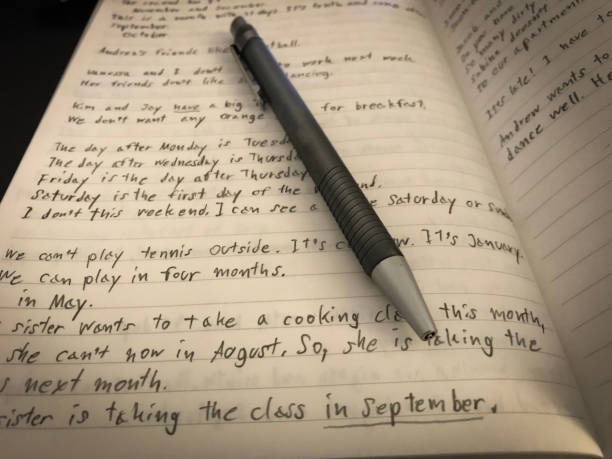 The second
November and December
This is a month with days. It's tenth and
September
October
Andrea's friends like ball.
Vanessa and I don't to work next week
Her friends don't like dancing.
Kim and Joy have a big for breakfast.
We don't want any orange
The day after Monday is Tuesd
The day after Wednesday is Thursd
Friday is the day after Thursday
Saturday is the first day of the end.
I don't this weekend. I can see a Saturday or
we can't play tennis outside. It's c w. It's January.
we can play in four months.
in May.
sister wants to take a cooking cla this month,
she can't now in August. So, she is taking the
s next month.
sister is taking the class in September.
so many dirty
to our apartment
It's late! I have to
Andrew wants to
dance well. He